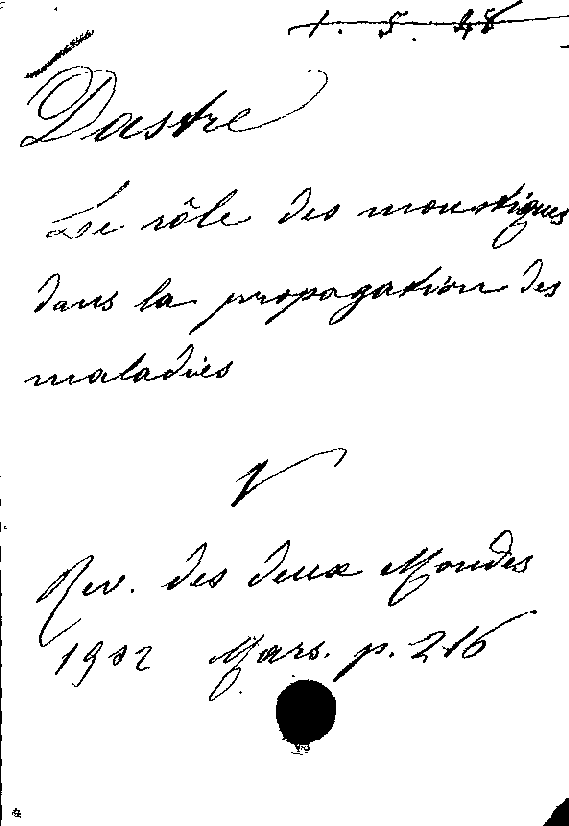 1. 5. 28
Dastre
Le rôle des moustiques
dans la propagation des
maladies
V
Rev. des deux Mondes
1902 Mars. p. 216